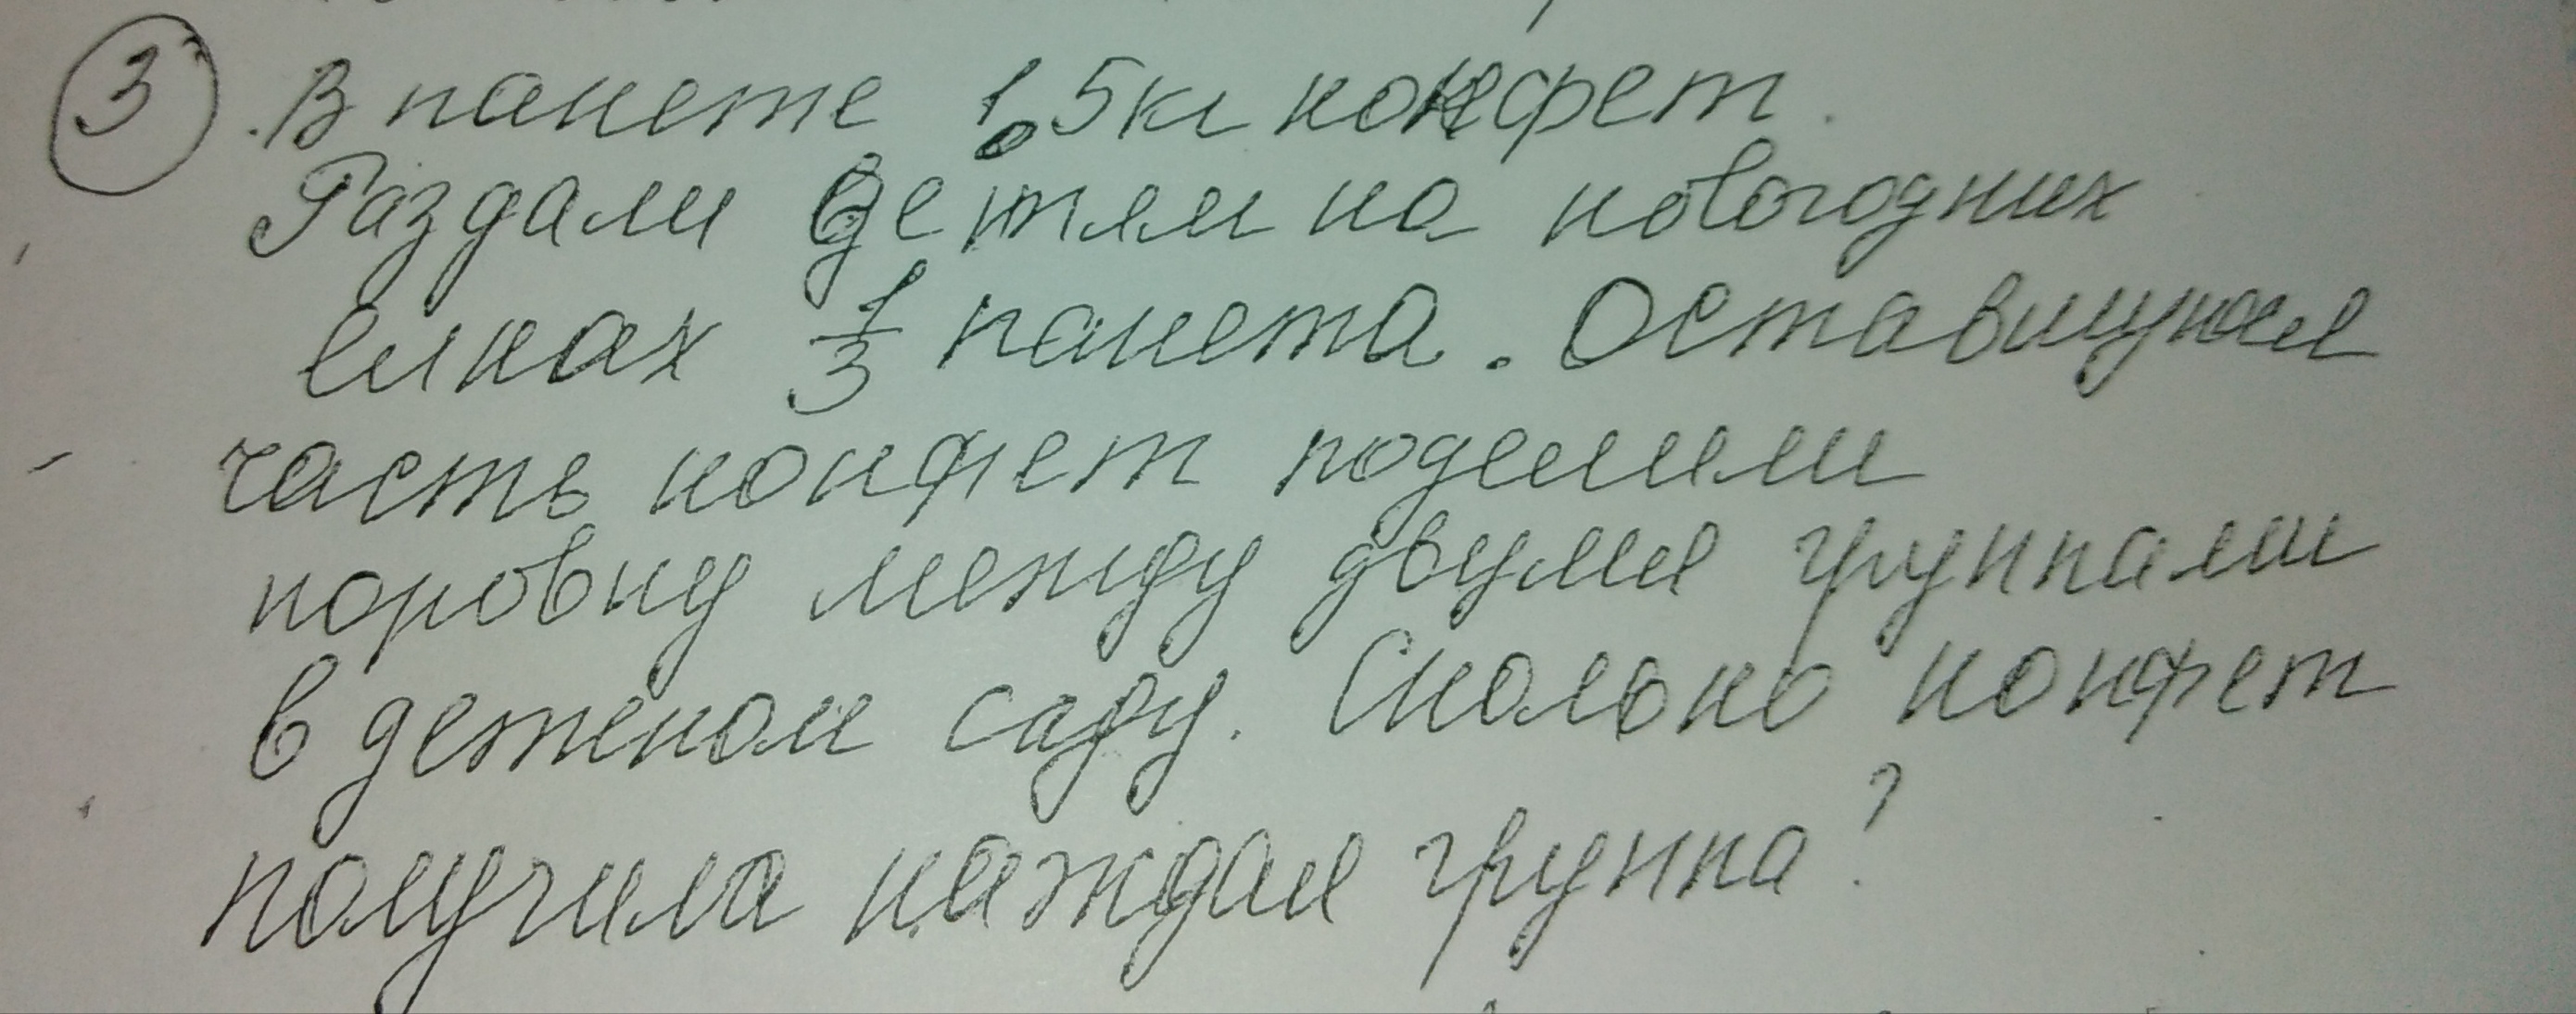 3 . В пакете 1,5кг конфет.
Раздали детям на новогодних
елках 1/3 пакета. Оставшуюся
часть конфет поделили
поровну между двумя группами
в детском саду. Сколько конфет
получила каждая группа?